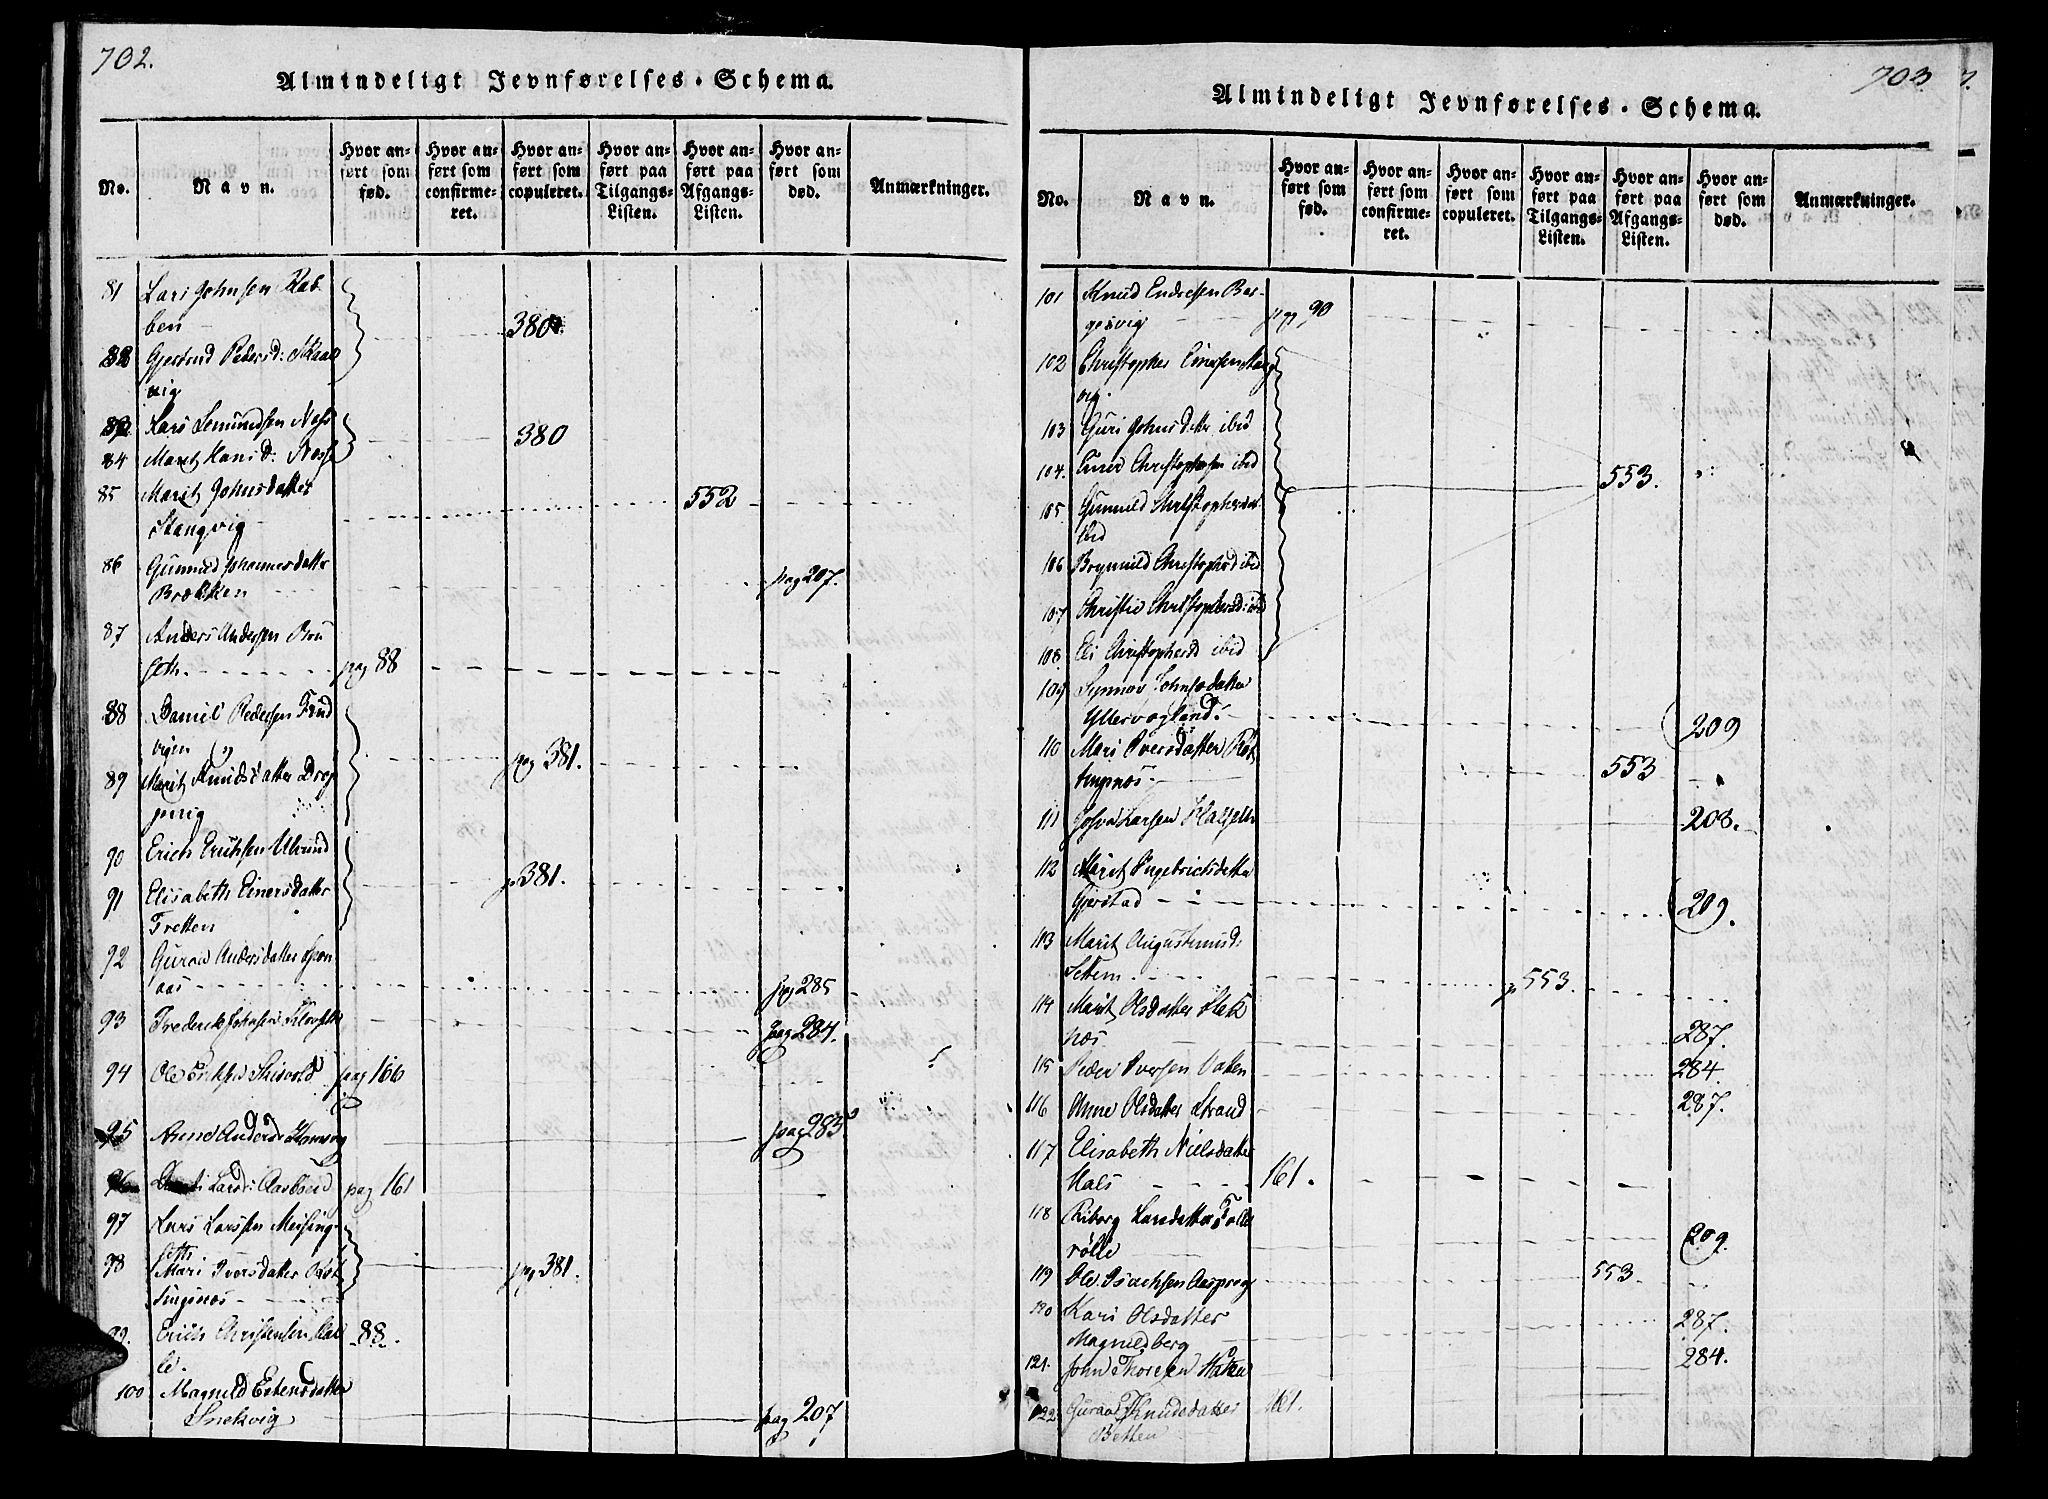 702.
Almindeligt Jevnførelses-Schema.
No.
Navn.
Hvor an-
ført som
fød.
Hvor an-
ført som
confirme-
ret.
Hvor an-
ført som
copuleret.
Hvor an-
ført paa
Tilgangs-
Listen.
Hvor an-
ført paa
Afgangs-
Listen.
Hvor an-
ført som
død.
Anmærkninger.
81 Lars Johnsen Kab-
ben 380.
82 Gjertrud Pedersd: Skaal
vig
Lars Semundsen Næss 380
84 Marit Hansd: Næss
85 Marit Johnsdatter 552
Stangvig
86 Gunnild Johannesdatter pag 207.
Brækken
87 Anders Andersen Bru
seth. pag 88
88 Daniel Pedersen Find
vigen pag 381.
89 Marit Knudsdatter Drop
pnig
90 Erich Erichsen Ulvund p 381.
91 Elisabeth Einersdatter
Tretten
92 Guroe Andersdatter
aas pag 285
93 Frederik Johnsen pag 284.
94 Ole Erichsen pag 166
95 Arne Andersd: pag 283
96 Larsd: Aasbøen pag 161
97 Lars Larsen Meising-
seth
98 Mari Iversdatter Rot pag 381.
tingnæs
99. Erich Christensen Hal 88.
le.
100 Magnild Estensdatter
Snekvig pag 207
703
Almindeligt Jevnførelses-Schema.
No.
Navn.
Hvor an-
ført som
fød.
Hvor an-
ført som
confirme-
ret.
Hvor an-
ført som
copuleret.
Hvor an-
ført paa
Tilgangs-
Listen.
Hvor an-
ført paa
Afgangs-
Listen.
Hvor an-
ført som
død.
Anmærkninger.
101 Knud Endresen Bær-
gesvig pag 90
102 Christopher Einersen Stang
vig.
103 Guri Johnsdatter ibid
104. Einer Christophersen ibid 553.
105 Gunnild Christophersdat
ibid
106 Brynnild Christophersd ibid
107 Christie Christophersd: ibid
108. Eli Christophersd ibid
109 Synnøv Johnsdatter
Yttervogland. 209
110 Mari Iversdatter Røt
tingnæs. 553
111 Larsen Halseth 208.
112 Marit Ingebrictsdatter
Gjørstad 209.
113 Marit Augustinusd:
Settem p 553.
114 Marit Olsdatter Flæk
næs 287.
115 Peder Iversen Vaten 284.
116 Anne Olsdatter Strand 287.
117 Elisabeth Nielsdatter
Hals 161.
118 Riborg Larsdatter Tølle
røllie 209.
119 Ole Isachsen Aasprong 553.
120 Kari Olsdatter
Magnildberg 287.
121. John Thoresen Haken 284.
122 Guroe Knudsdatter 161.
Betten